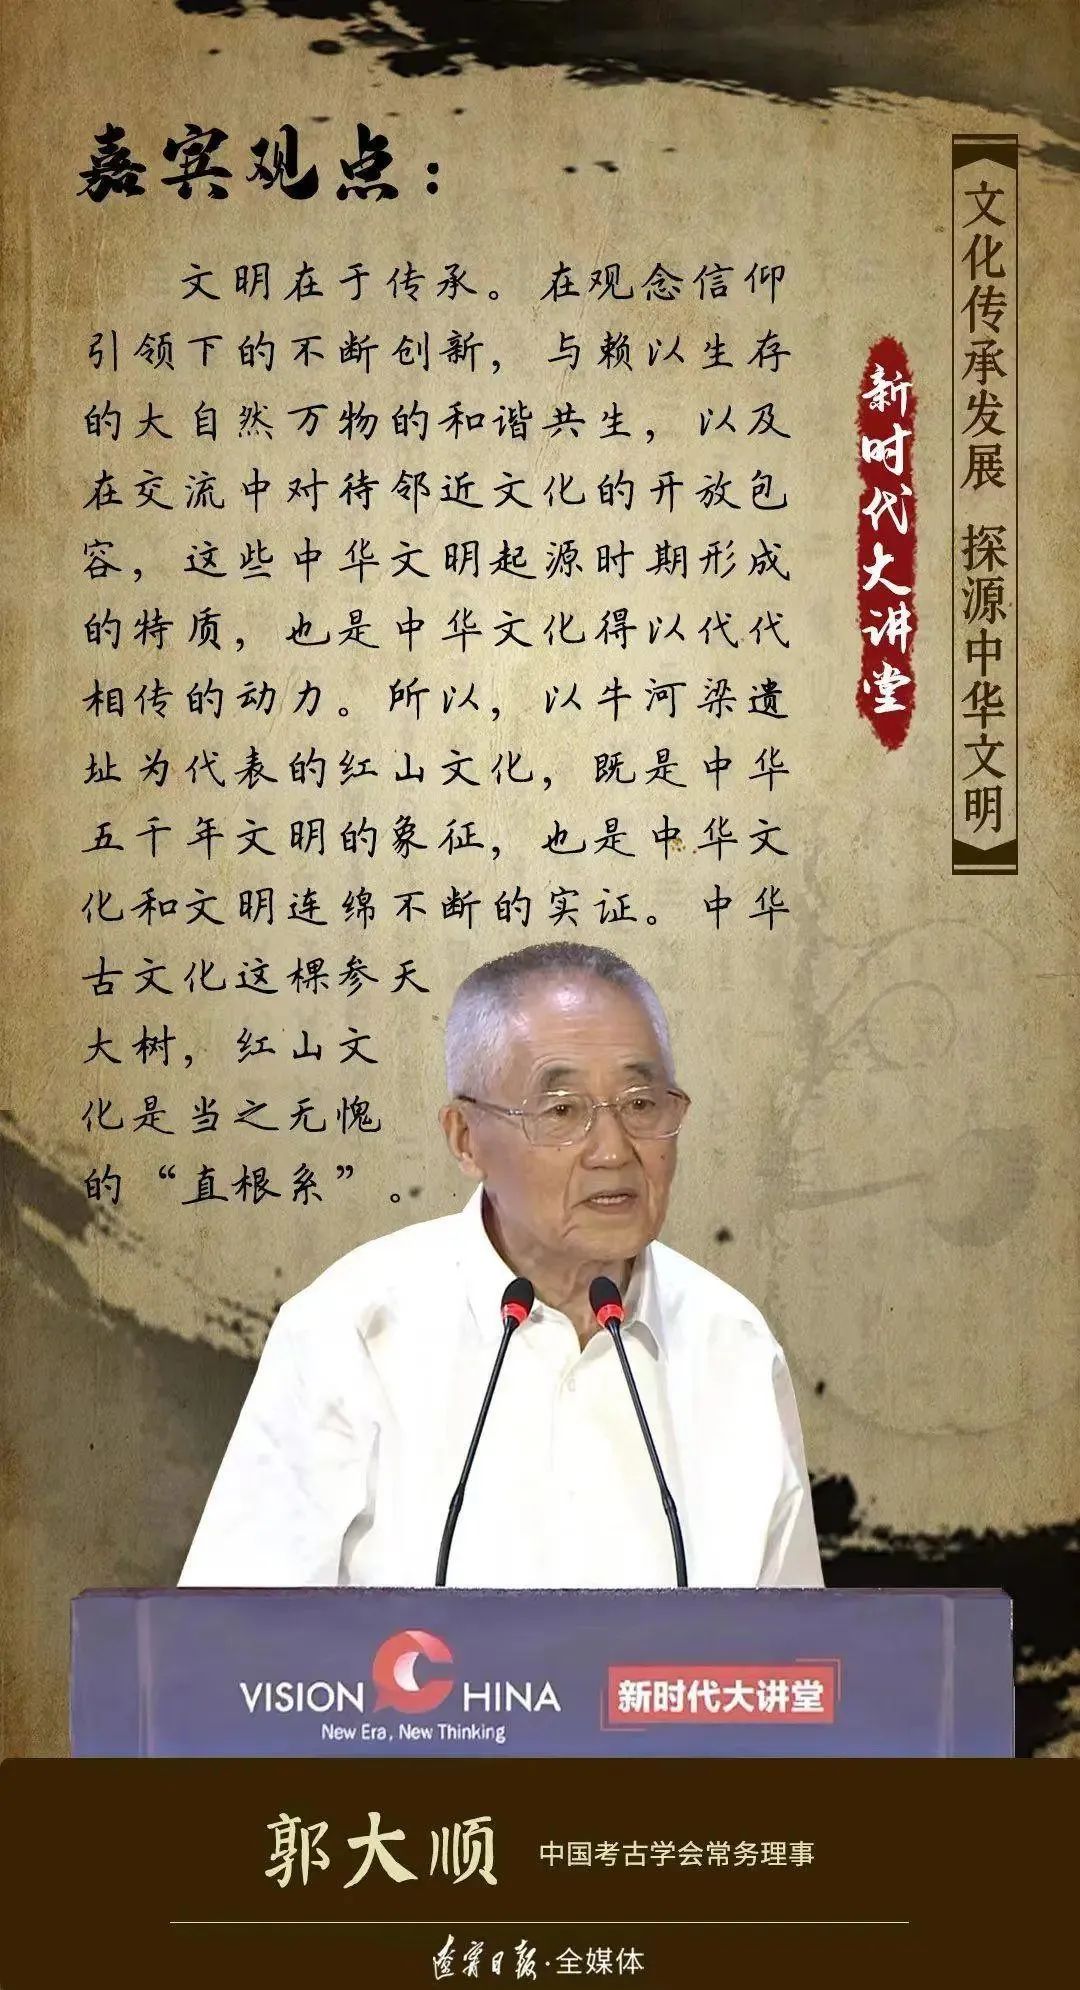 嘉宾观点：
文明在于传承。在观念信仰
引领下的不断创新，与赖以生存
的大自然万物的和谐共生，以及
在交流中对待邻近文化的开放包
容，这些中华文明起源时期形成
的特质，也是中华文化得以代代
相传的动力。所以，以牛河梁遗
址为代表的红山文化，既是中华
五千年文明的象征，也是中华文
化和文明连绵不断的实证。中华
古文化这棵参天
大树，红山文
化是当之无愧
的“直根系”。
文化传承发展 探源中华文明
新时代大讲堂
VISION CHINA
New Era, New Thinking
新时代大讲堂
郭大顺 中国考古学会常务理事
辽宁日报·全媒体